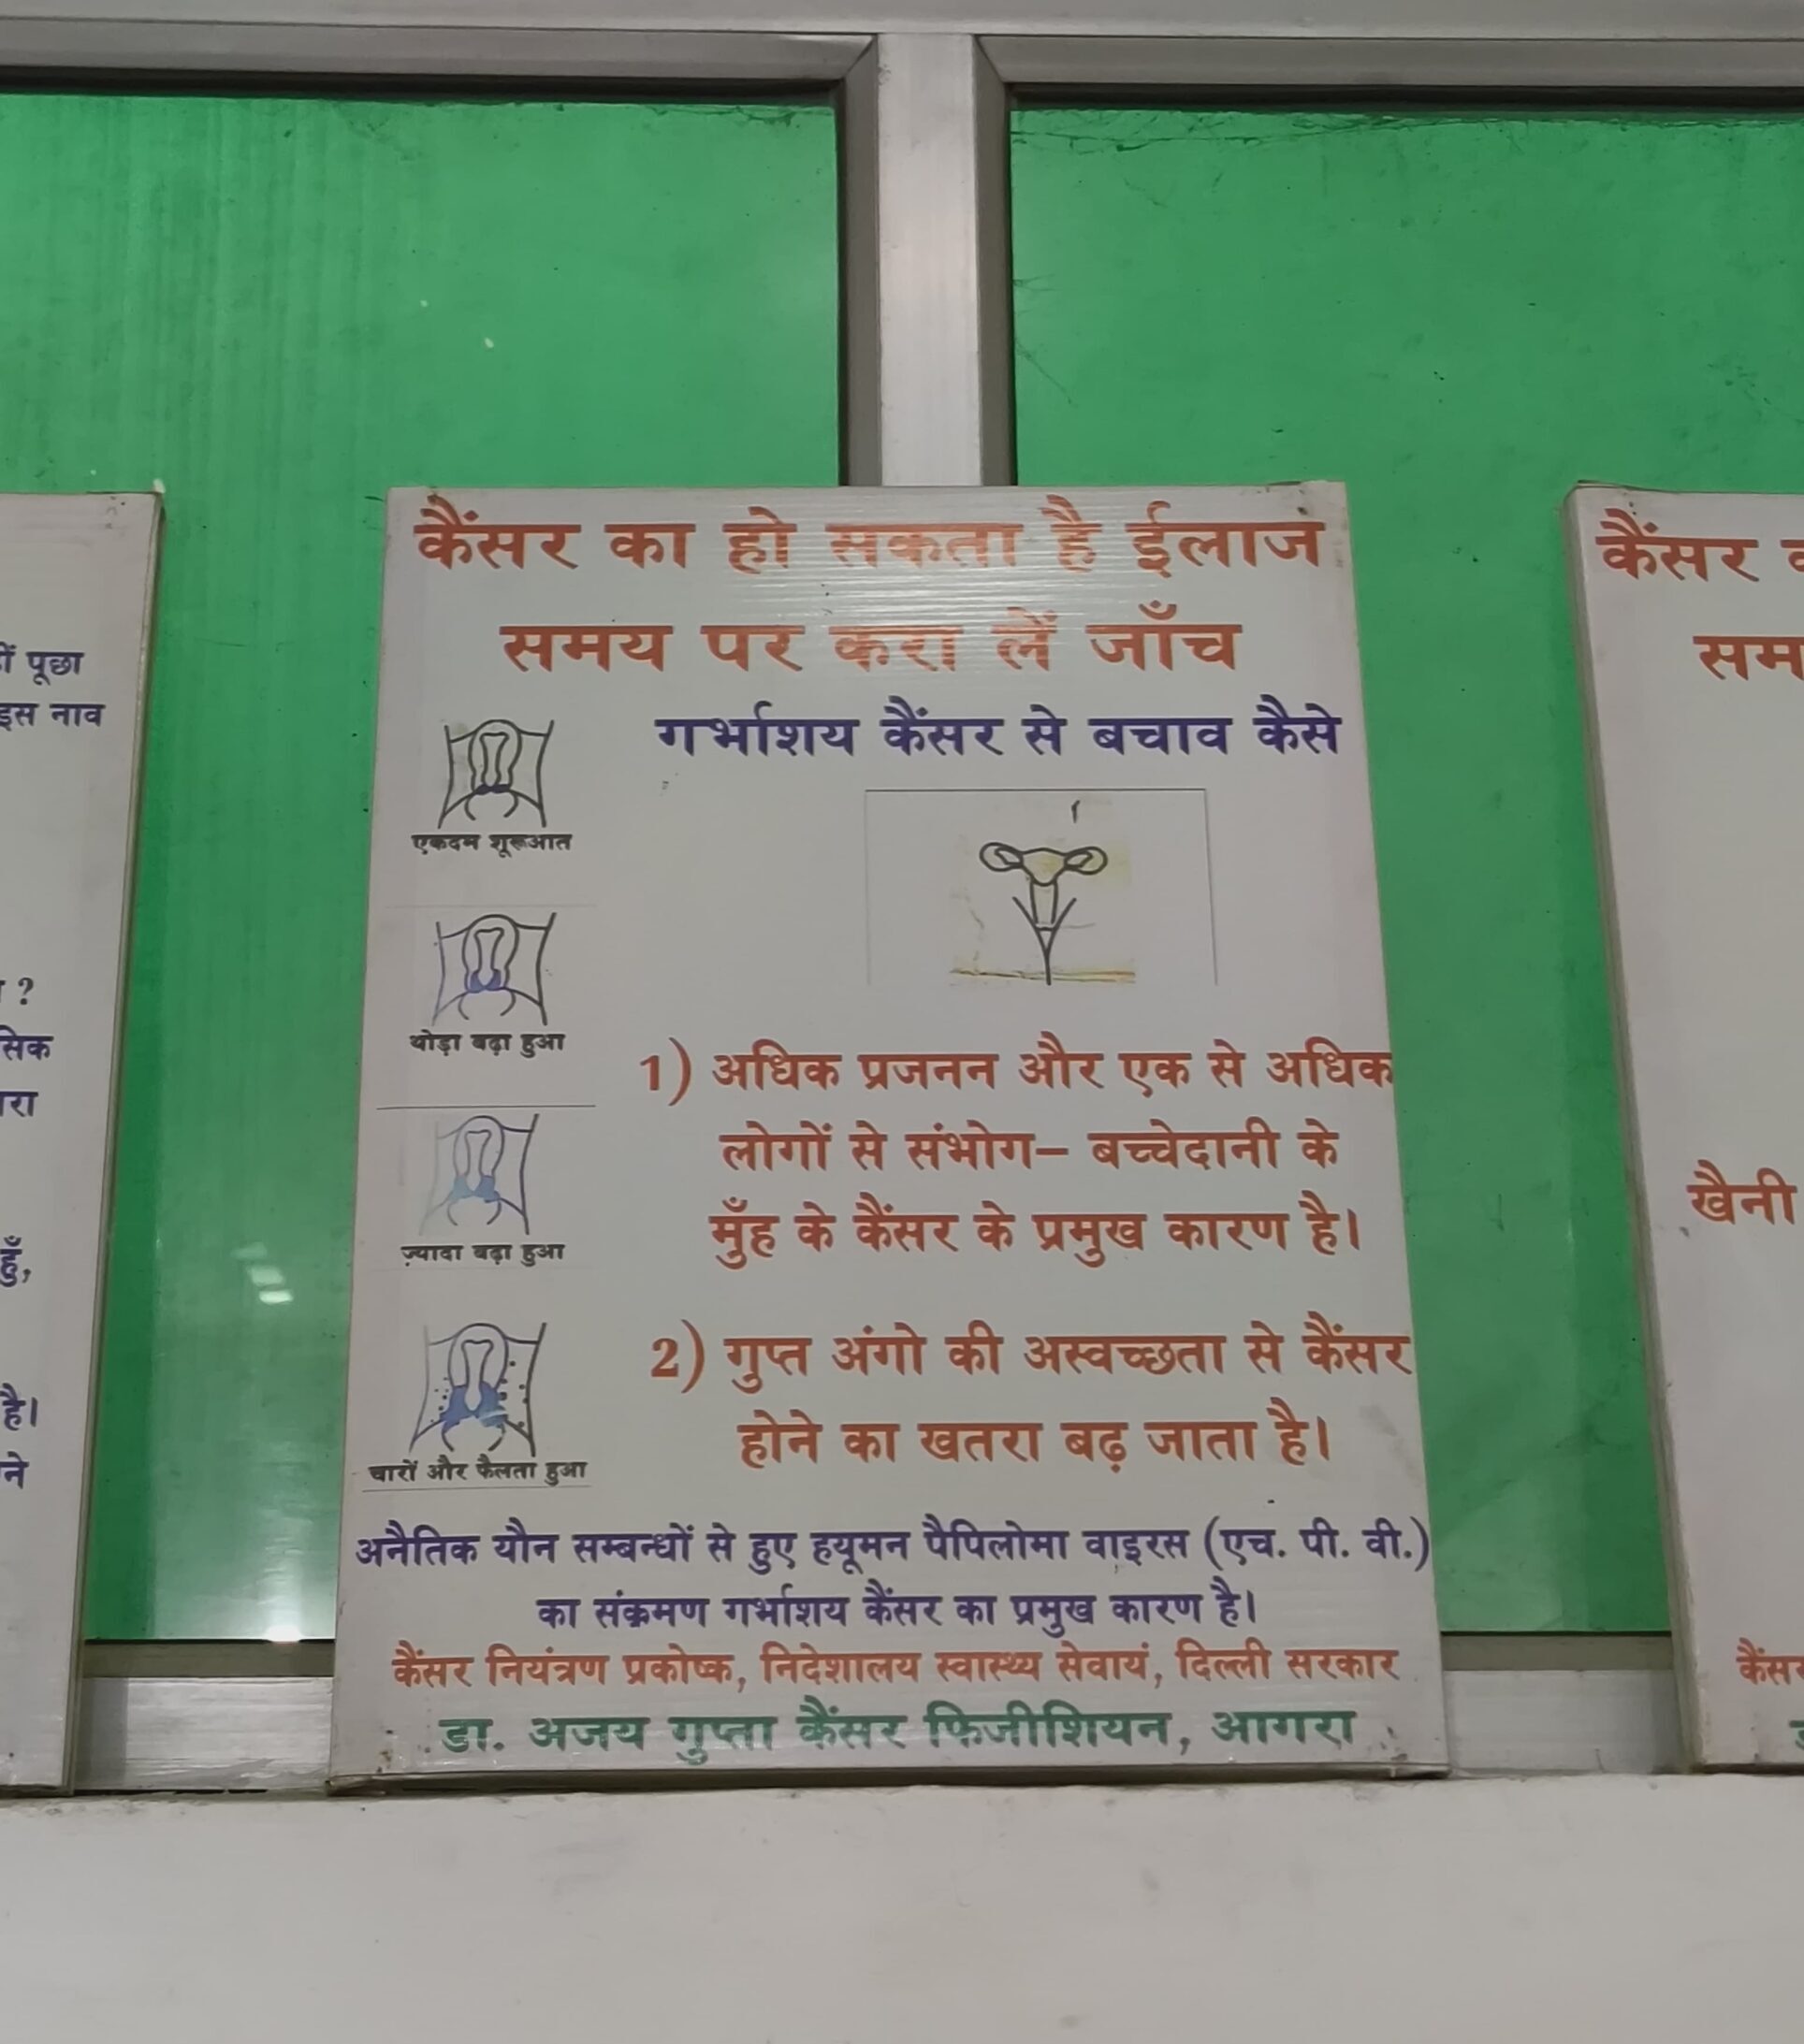 कैंसर का हो सकता है ईलाज
समय पर करा लें जाँच
गर्भाशय कैंसर से बचाव कैसे
एकदम शुरूआत
थोड़ा बढ़ा हुआ
ज़्यादा बढ़ा हुआ
चारों और फैलता हुआ
1) अधिक प्रजनन और एक से अधिक
लोगों से संभोग– बच्चेदानी के
मुँह के कैंसर के प्रमुख कारण है।
2) गुप्त अंगो की अस्वच्छता से कैंसर
होने का खतरा बढ़ जाता है।
अनैतिक यौन सम्बन्धों से हुए हयूमन पैपिलोमा वाइरस (एच. पी. वी.)
का संक्रमण गर्भाशय कैंसर का प्रमुख कारण है।
कैंसर नियंत्रण प्रकोष्क, निदेशालय स्वास्थ्य सेवायं, दिल्ली सरकार
डा. अजय गुप्ता कैंसर फिजीशियन, आगरा
पूछा
इस नाव
?
है।
कैंसर
सम
खैनी